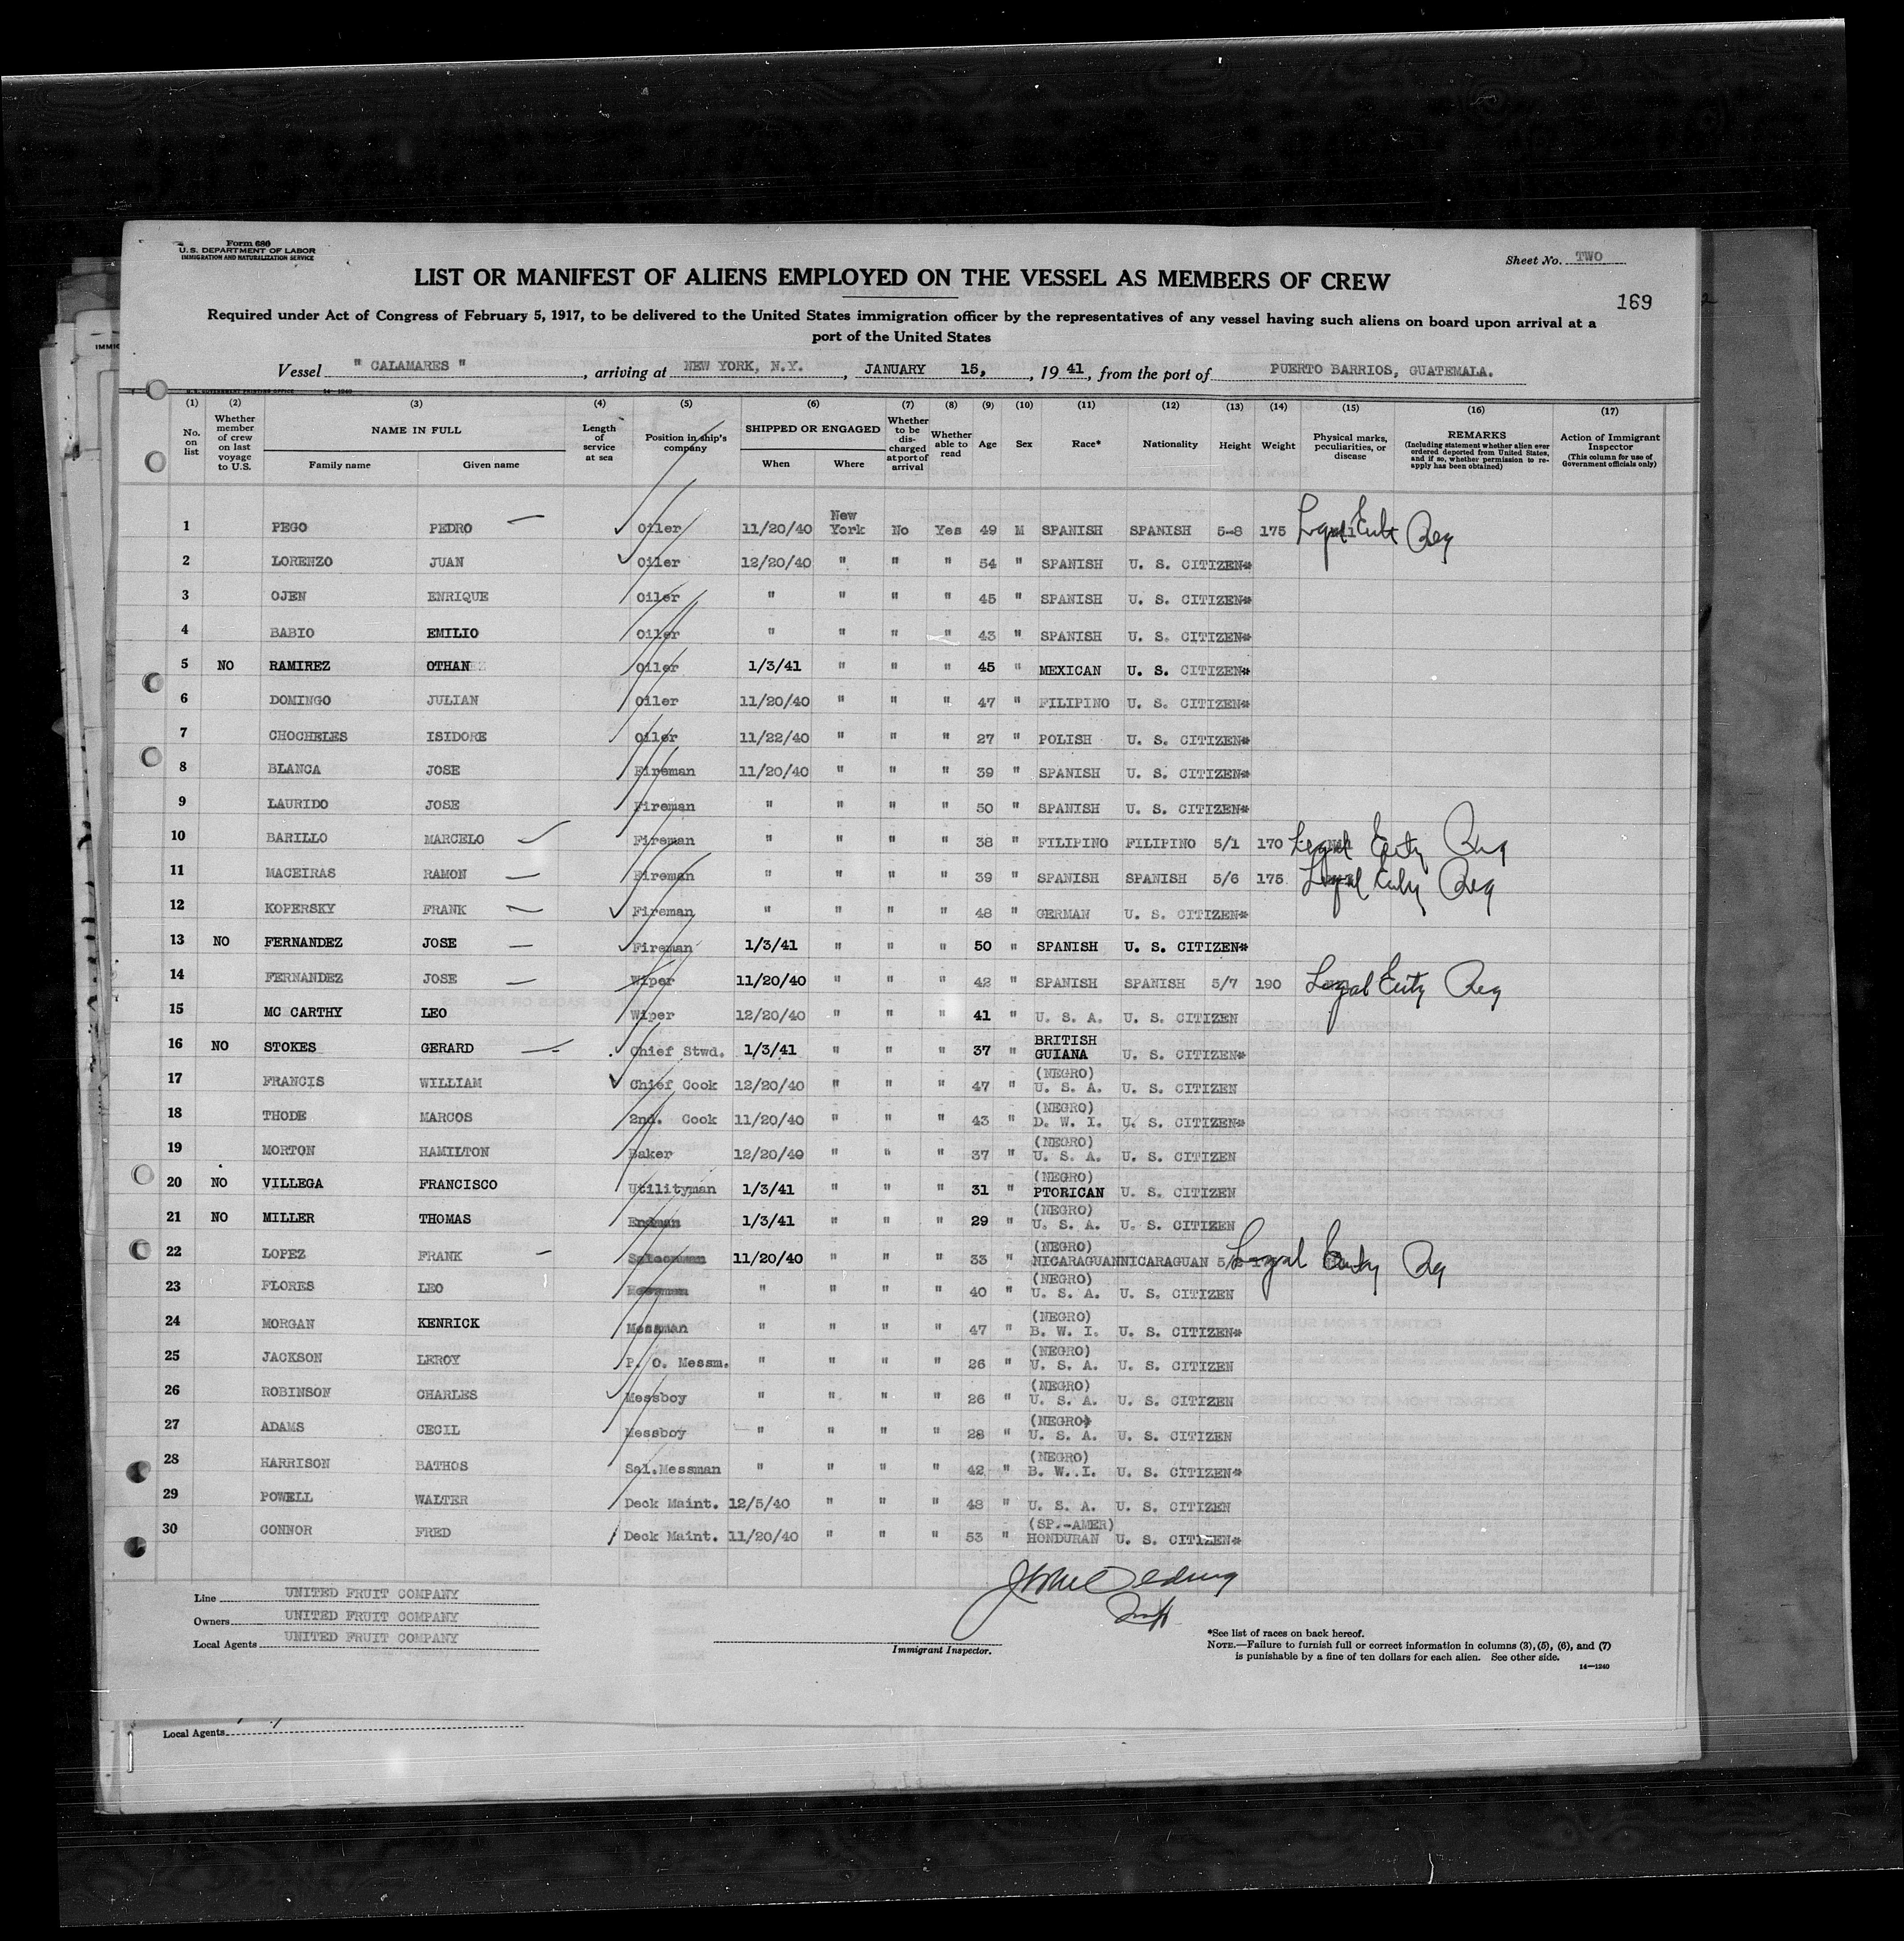 Form 680
U.S. DEPARTMENT OF LABOR
IMMIGRATION AND NATURALIZATION SERVICE
Sheet No. TWO
LIST OR MANIFEST OF ALIENS EMPLOYED ON THE VESSEL AS MEMBERS OF CREW
169
Required under Act of Congress of February 5, 1917, to be delivered to the United States immigration officer by the representatives of any vessel having such aliens on board upon arrival at a
port of the United States
Vessel " CALAMARES ", arriving at NEW YORK, N.Y., JANUARY 15, 1941, from the port of PUERTO BARRIOS, GUATEMALA.
(1) (2) (3) (4) (5) (6) (7) (8) (9) (10) (11) (12) (13) (14) (15) (16) (17)
No. on list
Whether member of crew on last voyage to U.S.
NAME IN FULL
Family name Given name
Length of service at sea
Position in ship's company
SHIPPED OR ENGAGED
When Where
Whether to be discharged at port of arrival
Whether able to read
Age Sex Race* Nationality Height Weight
Physical marks, peculiarities, or disease
REMARKS
(Including statement whether alien ever ordered deported from United States, and if so, whether permission to reapply has been obtained)
Action of Immigrant Inspector
(This column for use of Government officials only)
1 PEGO PEDRO Oiler 11/20/40 New York No Yes 49 M SPANISH SPANISH 5-8 175 Reg
2 LORENZO JUAN Oiler 12/20/40 " " " 54 " SPANISH U. S. CITIZEN*
3 OJEN ENRIQUE Oiler " " " " 45 " SPANISH U. S. CITIZEN*
4 BABIO EMILIO Oiler " " " " 43 " SPANISH U. S. CITIZEN*
5 NO RAMIREZ OTHAN Oiler 1/3/41 " " " 45 " MEXICAN U. S. CITIZEN*
6 DOMINGO JULIAN Oiler 11/20/40 " " " 47 " FILIPINO U. S. CITIZEN*
7 CHOCHELES ISIDORE Oiler 11/22/40 " " " 27 " POLISH U. S. CITIZEN*
8 BLANCA JOSE Fireman 11/20/40 " " " 39 " SPANISH U. S. CITIZEN*
9 LAURIDO JOSE Fireman " " " " 50 " SPANISH U. S. CITIZEN*
10 BARILLO MARCELO Fireman " " " " 38 " FILIPINO FILIPINO 5/1 170 Legal Entry Reg
11 MACEIRAS RAMON Fireman " " " " 39 " SPANISH SPANISH 5/6 175 Legal Entry Reg
12 KOPERSKY FRANK Fireman " " " " 48 " GERMAN U. S. CITIZEN*
13 NO FERNANDEZ JOSE Fireman 1/3/41 " " " 50 " SPANISH U. S. CITIZEN*
14 FERNANDEZ JOSE Wiper 11/20/40 " " " 42 " SPANISH SPANISH 5/7 190 Legal Entry Reg
15 MC CARTHY LEO Wiper 12/20/40 " " " 41 " U. S. A. U. S. CITIZEN
16 NO STOKES GERARD Chief Stwd. 1/3/41 " " " 37 " BRITISH GUIANA U. S. CITIZEN*
17 FRANCIS WILLIAM Chief Cook 12/20/40 " " " 47 " (NEGRO) U. S. A. U. S. CITIZEN
18 THODE MARCOS 2nd. Cook 11/20/40 " " " 43 " (NEGRO) D. W. I. U. S. CITIZEN*
19 MORTON HAMILTON Baker 12/20/40 " " " 37 " (NEGRO) U. S. A. U. S. CITIZEN
20 NO VILLEGA FRANCISCO Utilityman 1/3/41 " " " 31 " (NEGRO) PTORICAN U. S. CITIZEN
21 NO MILLER THOMAS 1/3/41 " " " 29 " (NEGRO) U. S. A. U. S. CITIZEN
22 LOPEZ FRANK 11/20/40 " " " 33 " (NEGRO) NICARAGUAN NICARAGUAN Legal Entry Reg
23 FLORES LEO " " " " 40 " (NEGRO) U. S. A. U. S. CITIZEN
24 MORGAN KENRICK Messman " " " " 47 " (NEGRO) B. W. I. U. S. CITIZEN*
25 JACKSON LEROY P. O. Messm. " " " " 26 " (NEGRO) U. S. A. U. S. CITIZEN
26 ROBINSON CHARLES Messboy " " " " 26 " (NEGRO) U. S. A. U. S. CITIZEN
27 ADAMS CECIL Messboy " " " " 28 " (NEGRO) U. S. A. U. S. CITIZEN
28 HARRISON BATHOS Sal.Messman " " " " 42 " (NEGRO) B. W. I. U. S. CITIZEN*
29 POWELL WALTER Deck Maint. 12/5/40 " " " 48 " U. S. A. U. S. CITIZEN
30 CONNOR FRED Deck Maint. 11/20/40 " " " 53 " (SP.-AMER) HONDURAN U. S. CITIZEN*
Line UNITED FRUIT COMPANY
Owners UNITED FRUIT COMPANY
Local Agents UNITED FRUIT COMPANY
Immigrant Inspector.
*See list of races on back hereof.
NOTE.—Failure to furnish full or correct information in columns (3), (5), (6), and (7)
is punishable by a fine of ten dollars for each alien. See other side.
14—1240
Local Agents